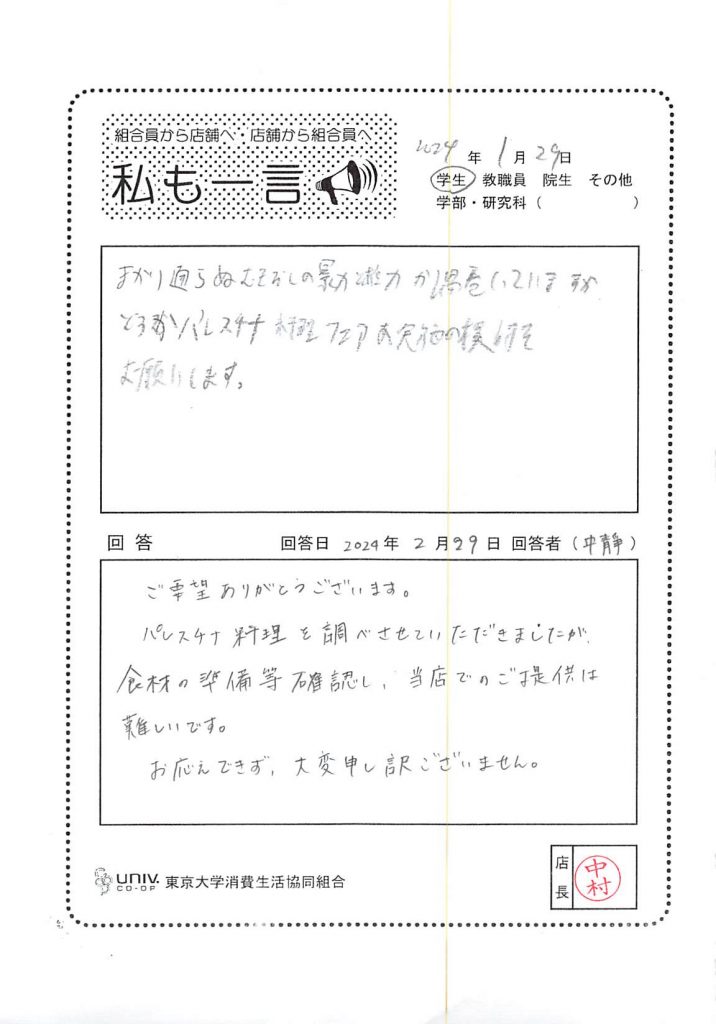 組合員から店舗へ・店舗から組合員へ
私も一言
2024年 1月29日
学生 教職員 院生 その他
学部・研究科（ ）
まかり通らぬむきだしの暴力と権力が渦巻いていますが
どうかパレスチナ料理フェアの実施の検討を
お願いします。
回答 回答日 2024年 2月29日 回答者（中静）
ご要望ありがとうございます。
パレスチナ料理を調べさせていただきましたが、
食材の準備等確認し、当店でのご提供は
難しいです。
お応えできず、大変申し訳ございません。
UNIV. CO-OP 東京大学消費生活協同組合
店長 中村